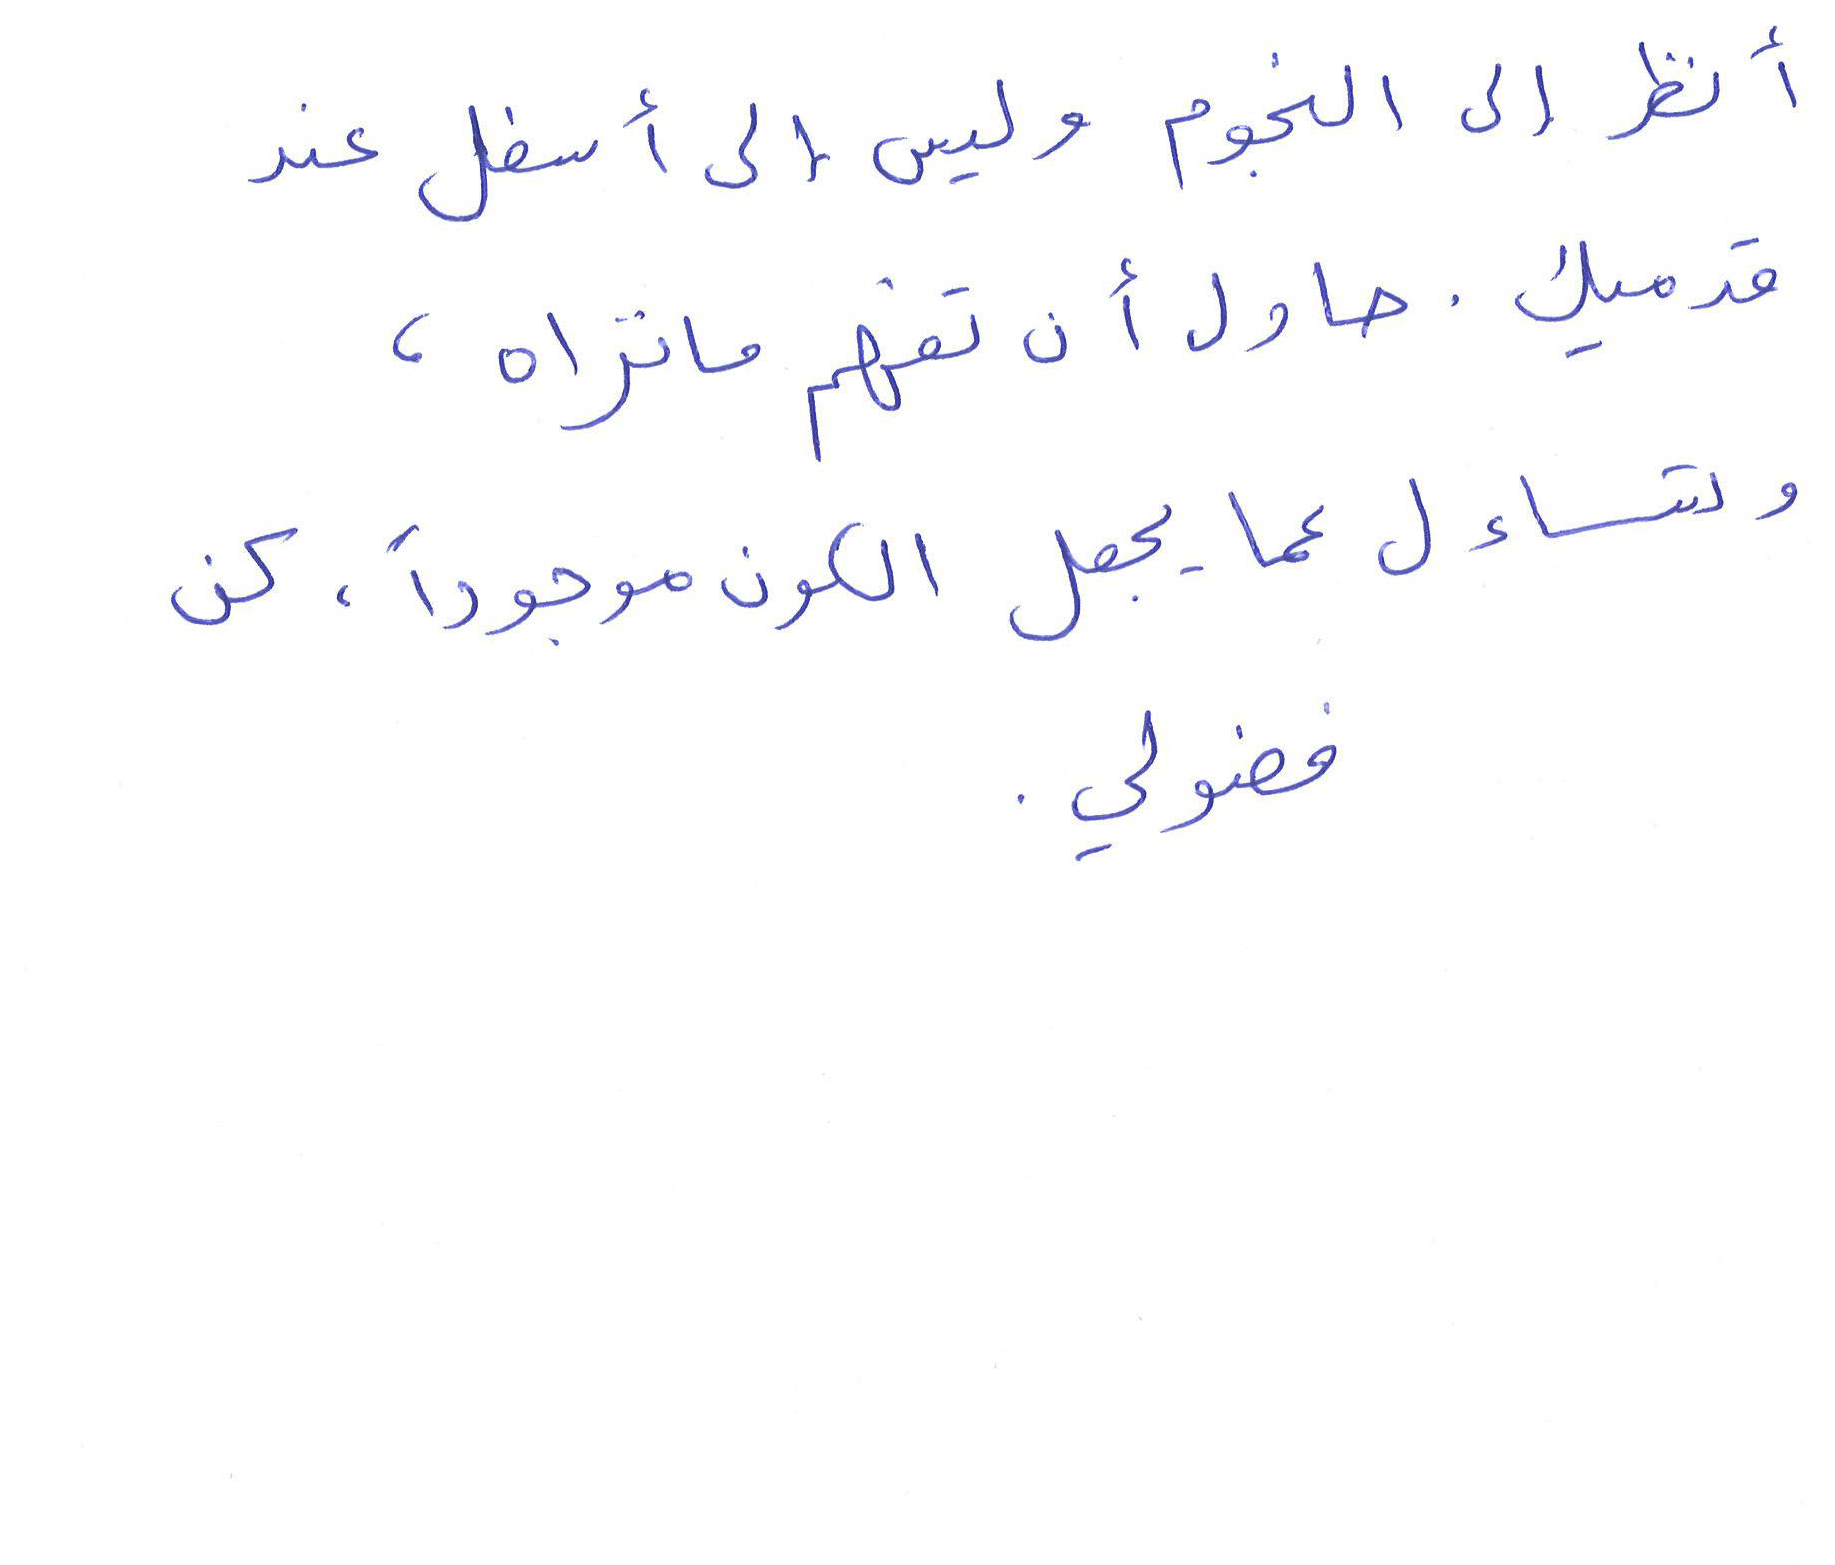 أنظر إلى النجوم وليس إلى أسفل عند
قدميك . حاول أن تفهم ماتراه ،
وتتساءل عما يجعل الكون موجوداً ، كن
فضولي .